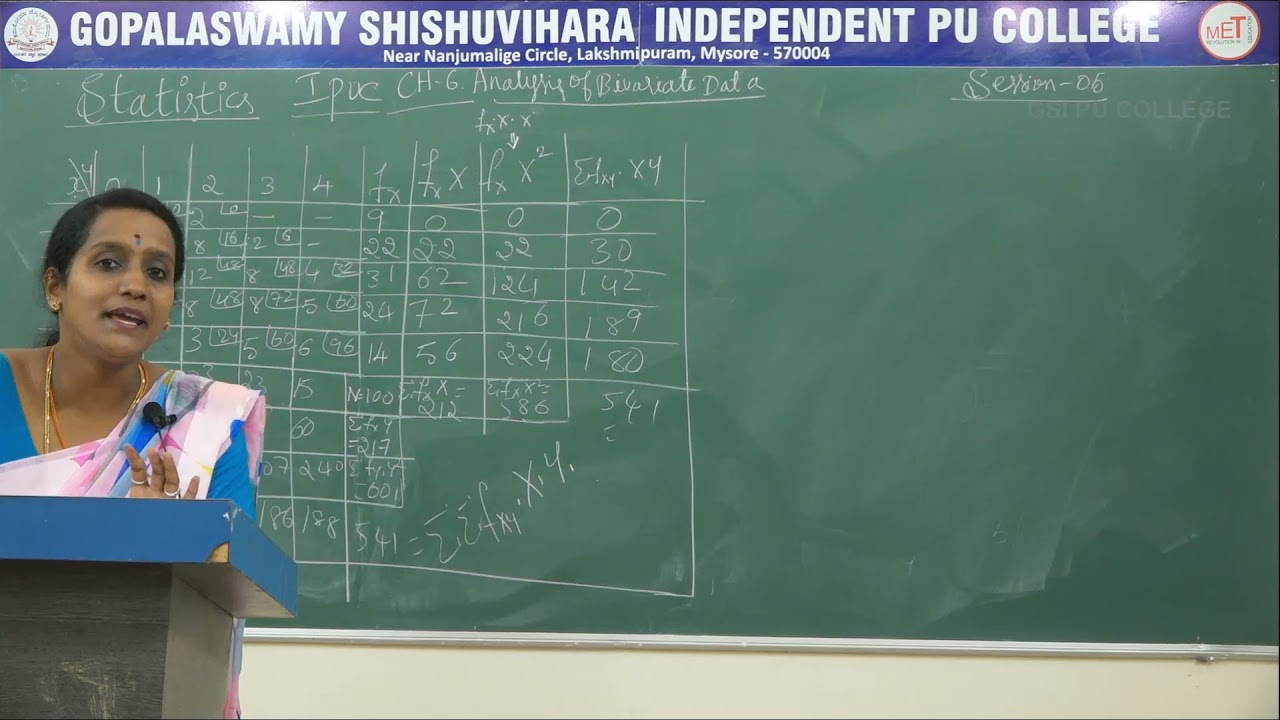 GOPALASWAMY SHISHUVIHARA INDEPENDENT PU COLLEGE
Near Nanjumalige Circle, Lakshmipuram, Mysore - 570004
MET
Statistics I puc CH-6. Analysis of Bivariate Data Session-05
GSI PU COLLEGE
fx x · x
x y 0 1 2 3 4 fx fx x fx x² Σfxy. xy
2 — — 9 0 0 0
8 16 2 6 - 22 22 22 30
12 48 8 48 4 32 31 62 124 142
8 48 8 72 5 60 24 72 216 189
3 24 5 60 6 96 14 56 224 180
15 N=100 Σfx x = 212 Σfx x² = 586 541
60 Σfy y = 217
07 240 = 601
186 188 541 = ΣΣfxy. x. y.